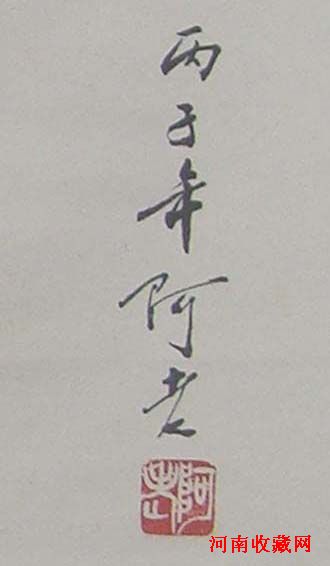 丙子年阿老
阿老
河南收藏网